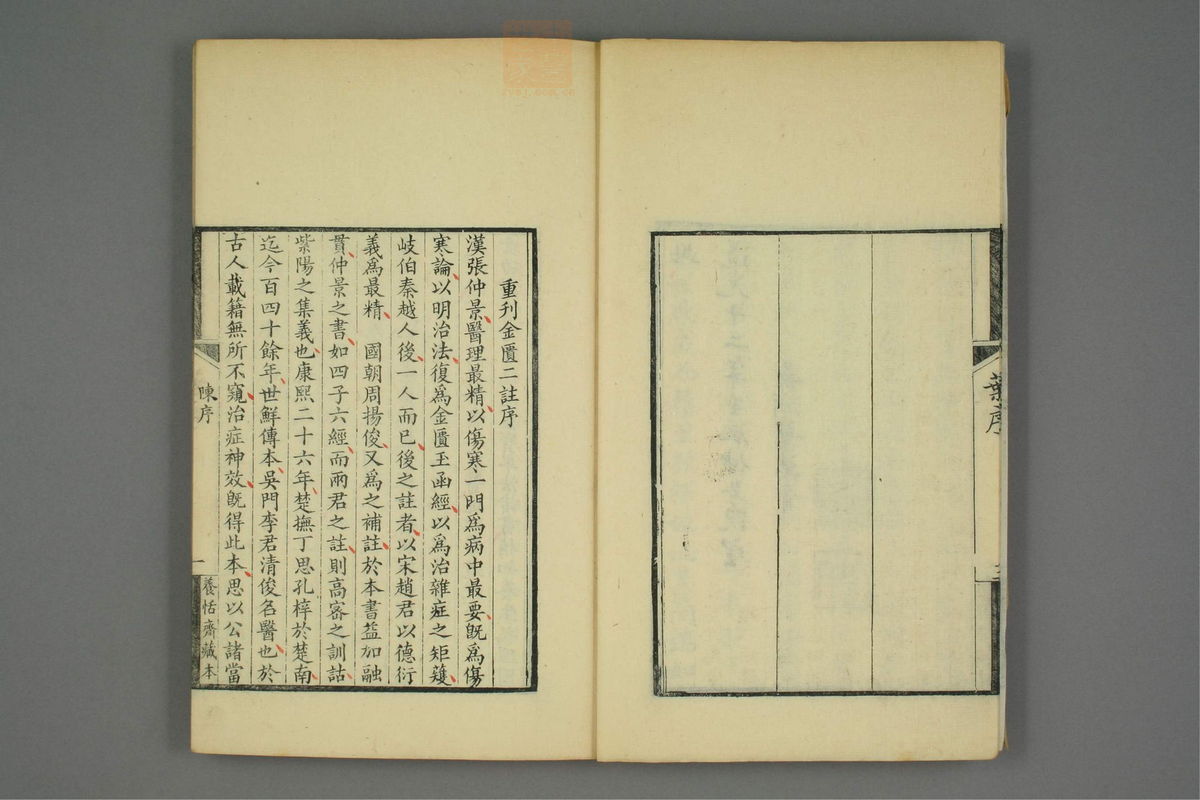 葉序
重刊金匱二註序
漢張仲景醫理最精以傷寒一門為病中最要旣為傷
寒論以明治法復為金匱玉函經以為治雜症之矩矱
岐伯秦越人後一人而已後之註者以宋趙君以德衍
義為最精　國朝周揚俊又為之補註於本書益加融
貫仲景之書如四子六經而兩君之註則高密之訓詁
紫陽之集義也康熙二十六年楚撫丁思孔梓於楚南
迄今百四十餘年世鮮傳本吳門李君清俊名醫也於
古人載籍無所不窺治症神效旣得此本思以公諸當
陳序
一
養恬齋藏本